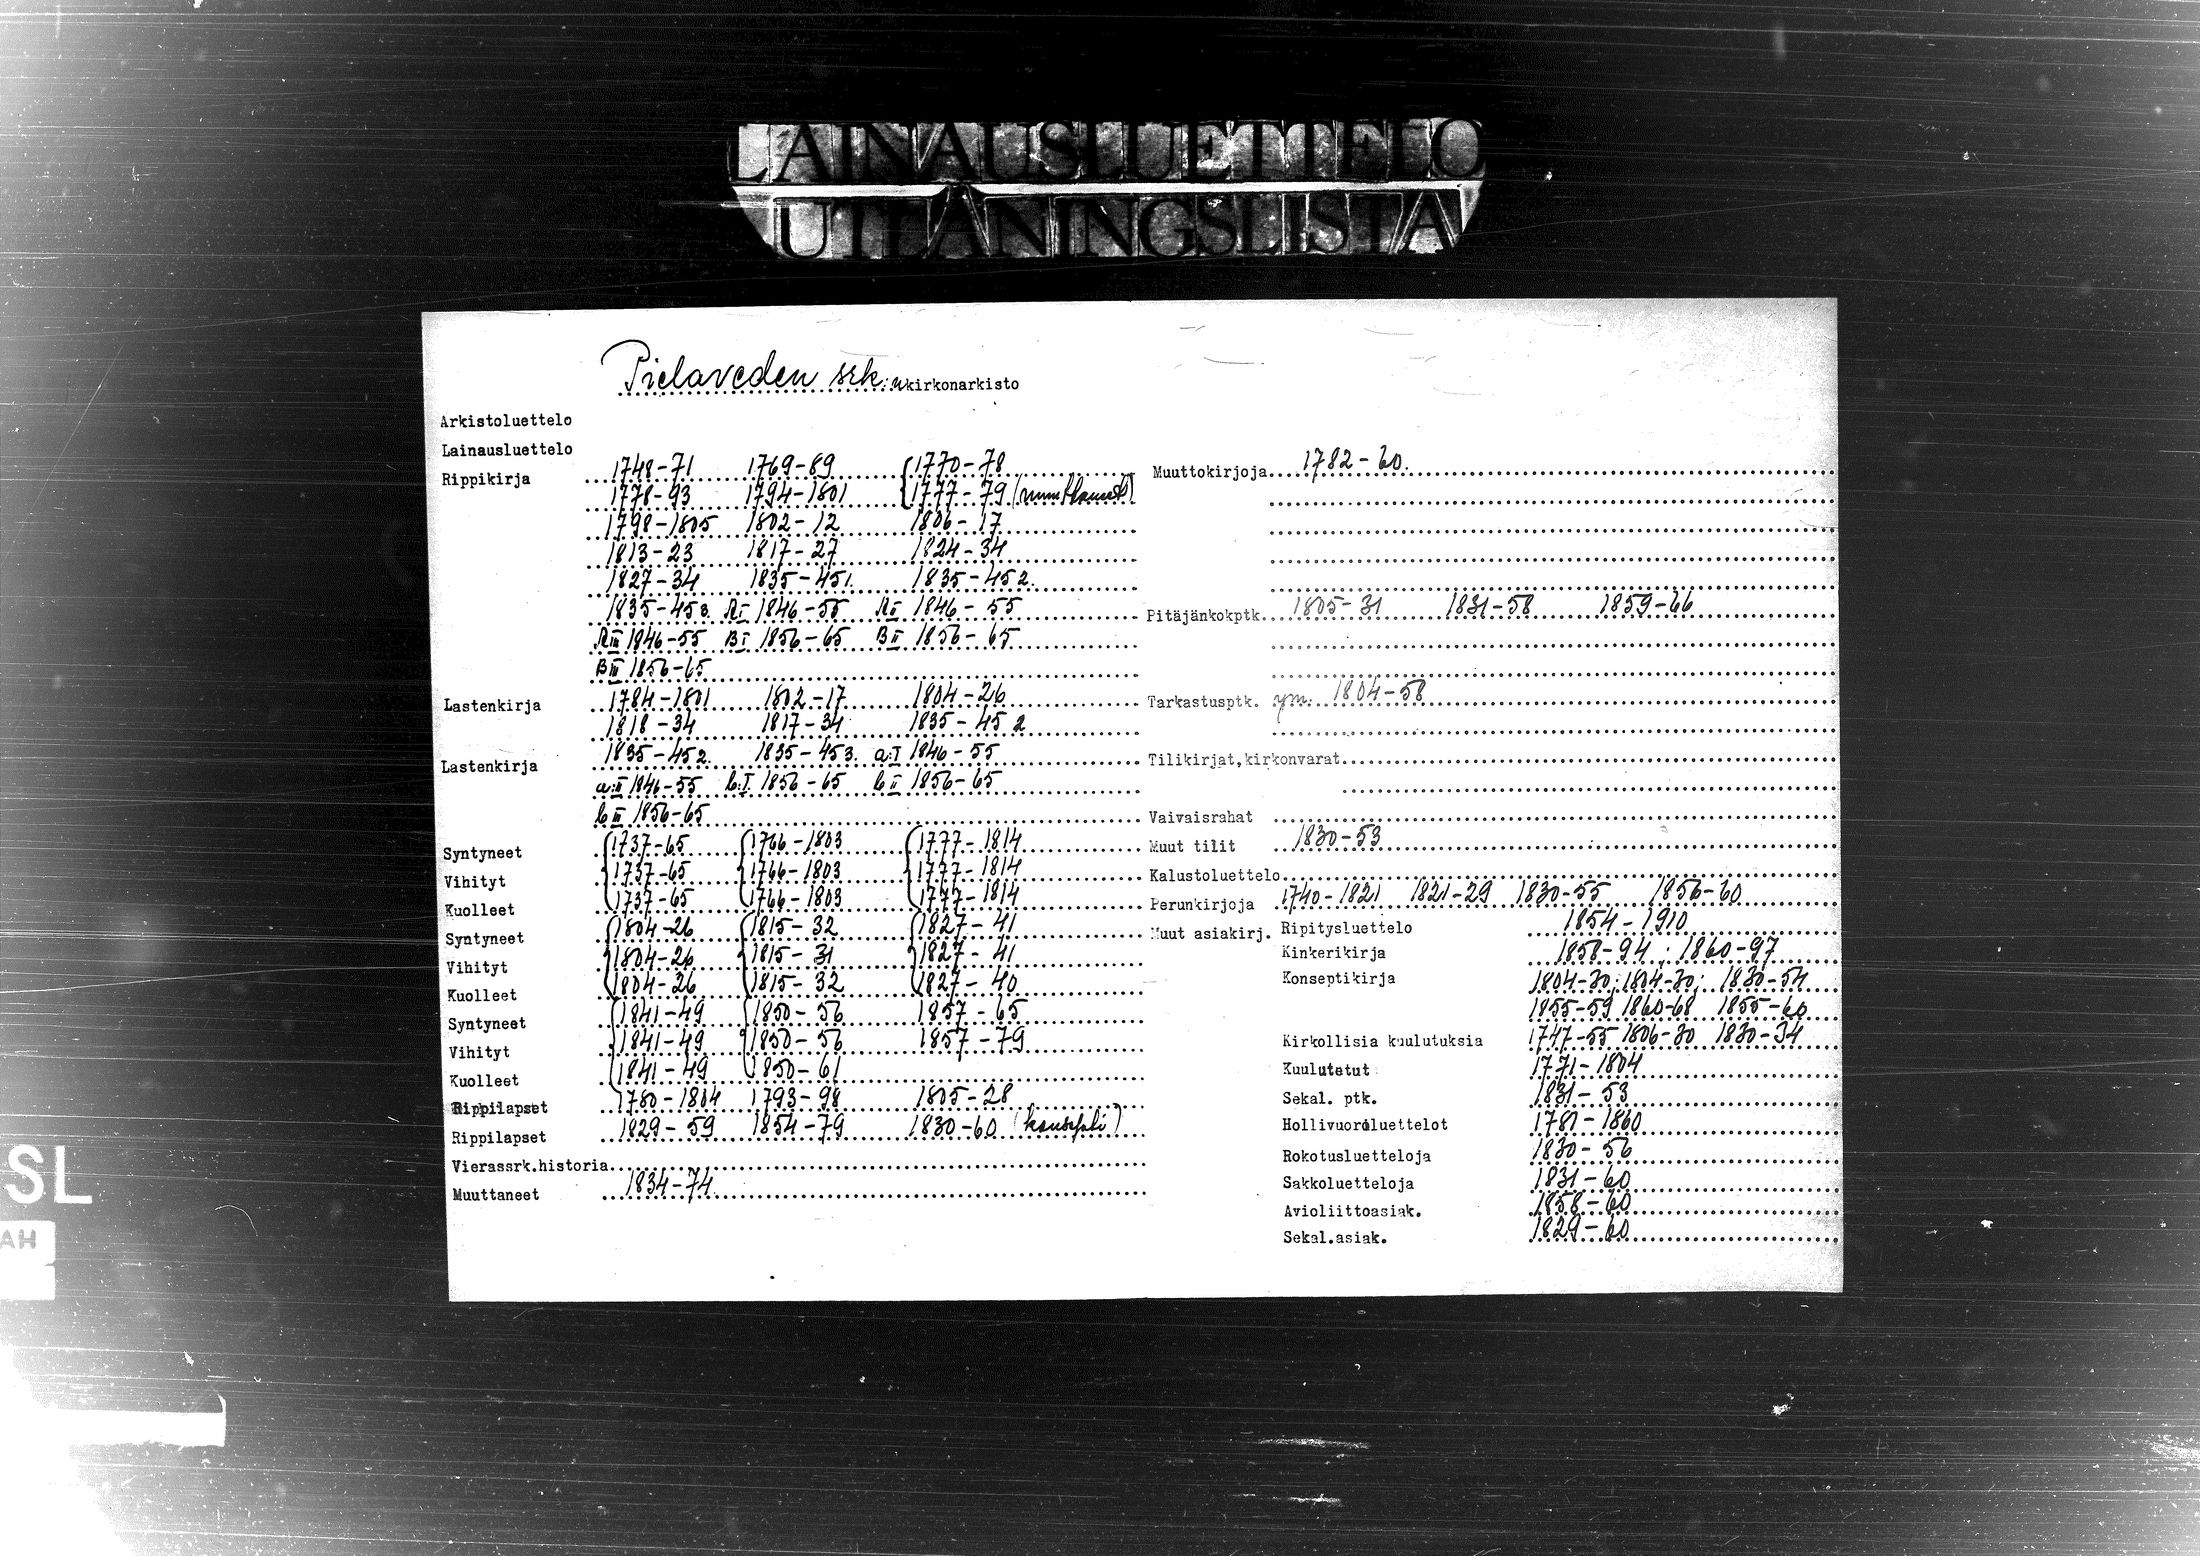 LAINAUSLUETTELO
UTLÅNINGSLISTA
Pielaveden srk:n kirkonarkisto
Arkistoluettelo
Lainausluettelo
Rippikirja 1748-71 1769-89 1770-78
1778-93 1794-1801 1777-79
1798-1805 1802-12 1806-17
1813-23 1817-27 1824-34
1827-34 1835-45 1. 1835-45 2.
1835-45 3. RI 1846-55 RII 1846-55
RIII 1846-55 BI 1856-65 BII 1856-65
BIII 1856-65
Lastenkirja 1784-1801 1802-17 1804-26
1818-34 1817-34 1835-45 2
Lastenkirja 1835-45 2. 1835-45 3. a:I 1846-55
a:II 1846-55 b:I 1856-65 b II 1856-65
b III 1856-65
Syntyneet 1737-65 1766-1803 1777-1814
Vihityt 1737-65 1766-1803 1777-1814
Kuolleet 1737-65 1766-1803 1777-1814
Syntyneet 1804-26 1815-32 1827-41
Vihityt 1804-26 1815-31 1827-41
Kuolleet 1804-26 1815-32 1827-40
Syntyneet 1841-49 1850-56 1857-65
Vihityt 1841-49 1850-56 1857-79
Kuolleet 1841-49 1850-61
Rippilapset 1780-1804 1793-98 1805-28
Rippilapset 1829-59 1854-79 1830-60 (konsepti)
Vierassrk.historia
Muuttaneet 1834-74
Muuttokirjoja 1782-60.
Pitäjänkokptk. 1805-31 1831-58 1859-66
Tarkastusptk. ym. 1804-58
Tilikirjat,kirkonvarat
Vaivaisrahat
Muut tilit 1830-53
Kalustoluettelo
Perunkirjoja 1740-1821 1821-29 1830-55 1856-60
Muut asiakirj. Ripitysluettelo 1854-1910
Kinkerikirja 1858-94; 1860-97
Konseptikirja 1804-30; 1804-30; 1830-54
1855-59 1860-68 1855-60
Kirkollisia kuulutuksia 1747-55 1806-30 1830-34
Kuulutetut 1771-1804
Sekal. ptk. 1831-53
Hollivuoroluettelot 1781-1860
Rokotusluetteloja 1830-56
Sakkoluetteloja 1831-60
Avioliittoasiak. 1858-60
Sekal.asiak. 1829-60
SL
AH